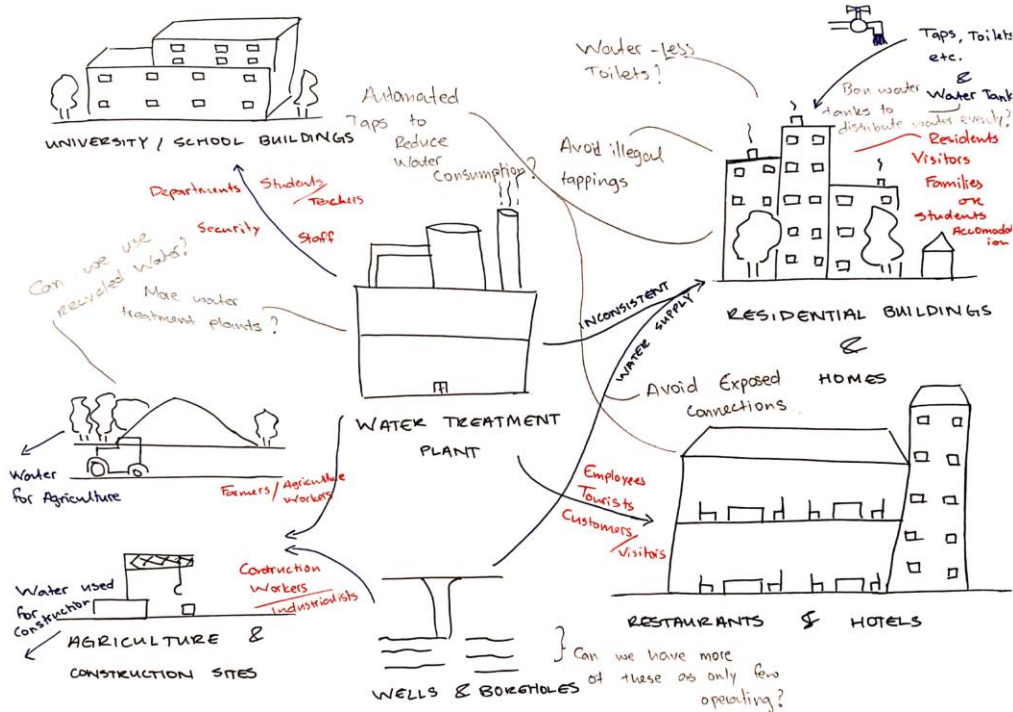 UNIVERSITY / SCHOOL BUILDINGS
Departments
Students /
Teachers
Security
Staff
Automated
Taps to
Reduce
Water
Consumption?
Water-less
Toilets?
Avoid illegal
tappings
Taps, Toilets
etc.
&
Water Tank
Ban water
tanks to
distribute water evenly?
Residents
Visitors
Families
or
Students
Accomodat
ion
RESIDENTIAL BUILDINGS
&
HOMES
Can we use
recycled water?
More water
treatment plants?
WATER TREATMENT
PLANT
INCONSISTENT
WATER SUPPLY
Avoid Exposed
Connections
Water
for Agriculture
Farmers / Agriculture
Workers
Employees
Tourists
Customers
/ Visitors
RESTAURANTS & HOTELS
Water used
for
Construction
Contruction
Workers
Industrialists
AGRICULTURE &
CONSTRUCTION SITES
WELLS & BOREHOLES
Can we have more
of these as only few
operating?